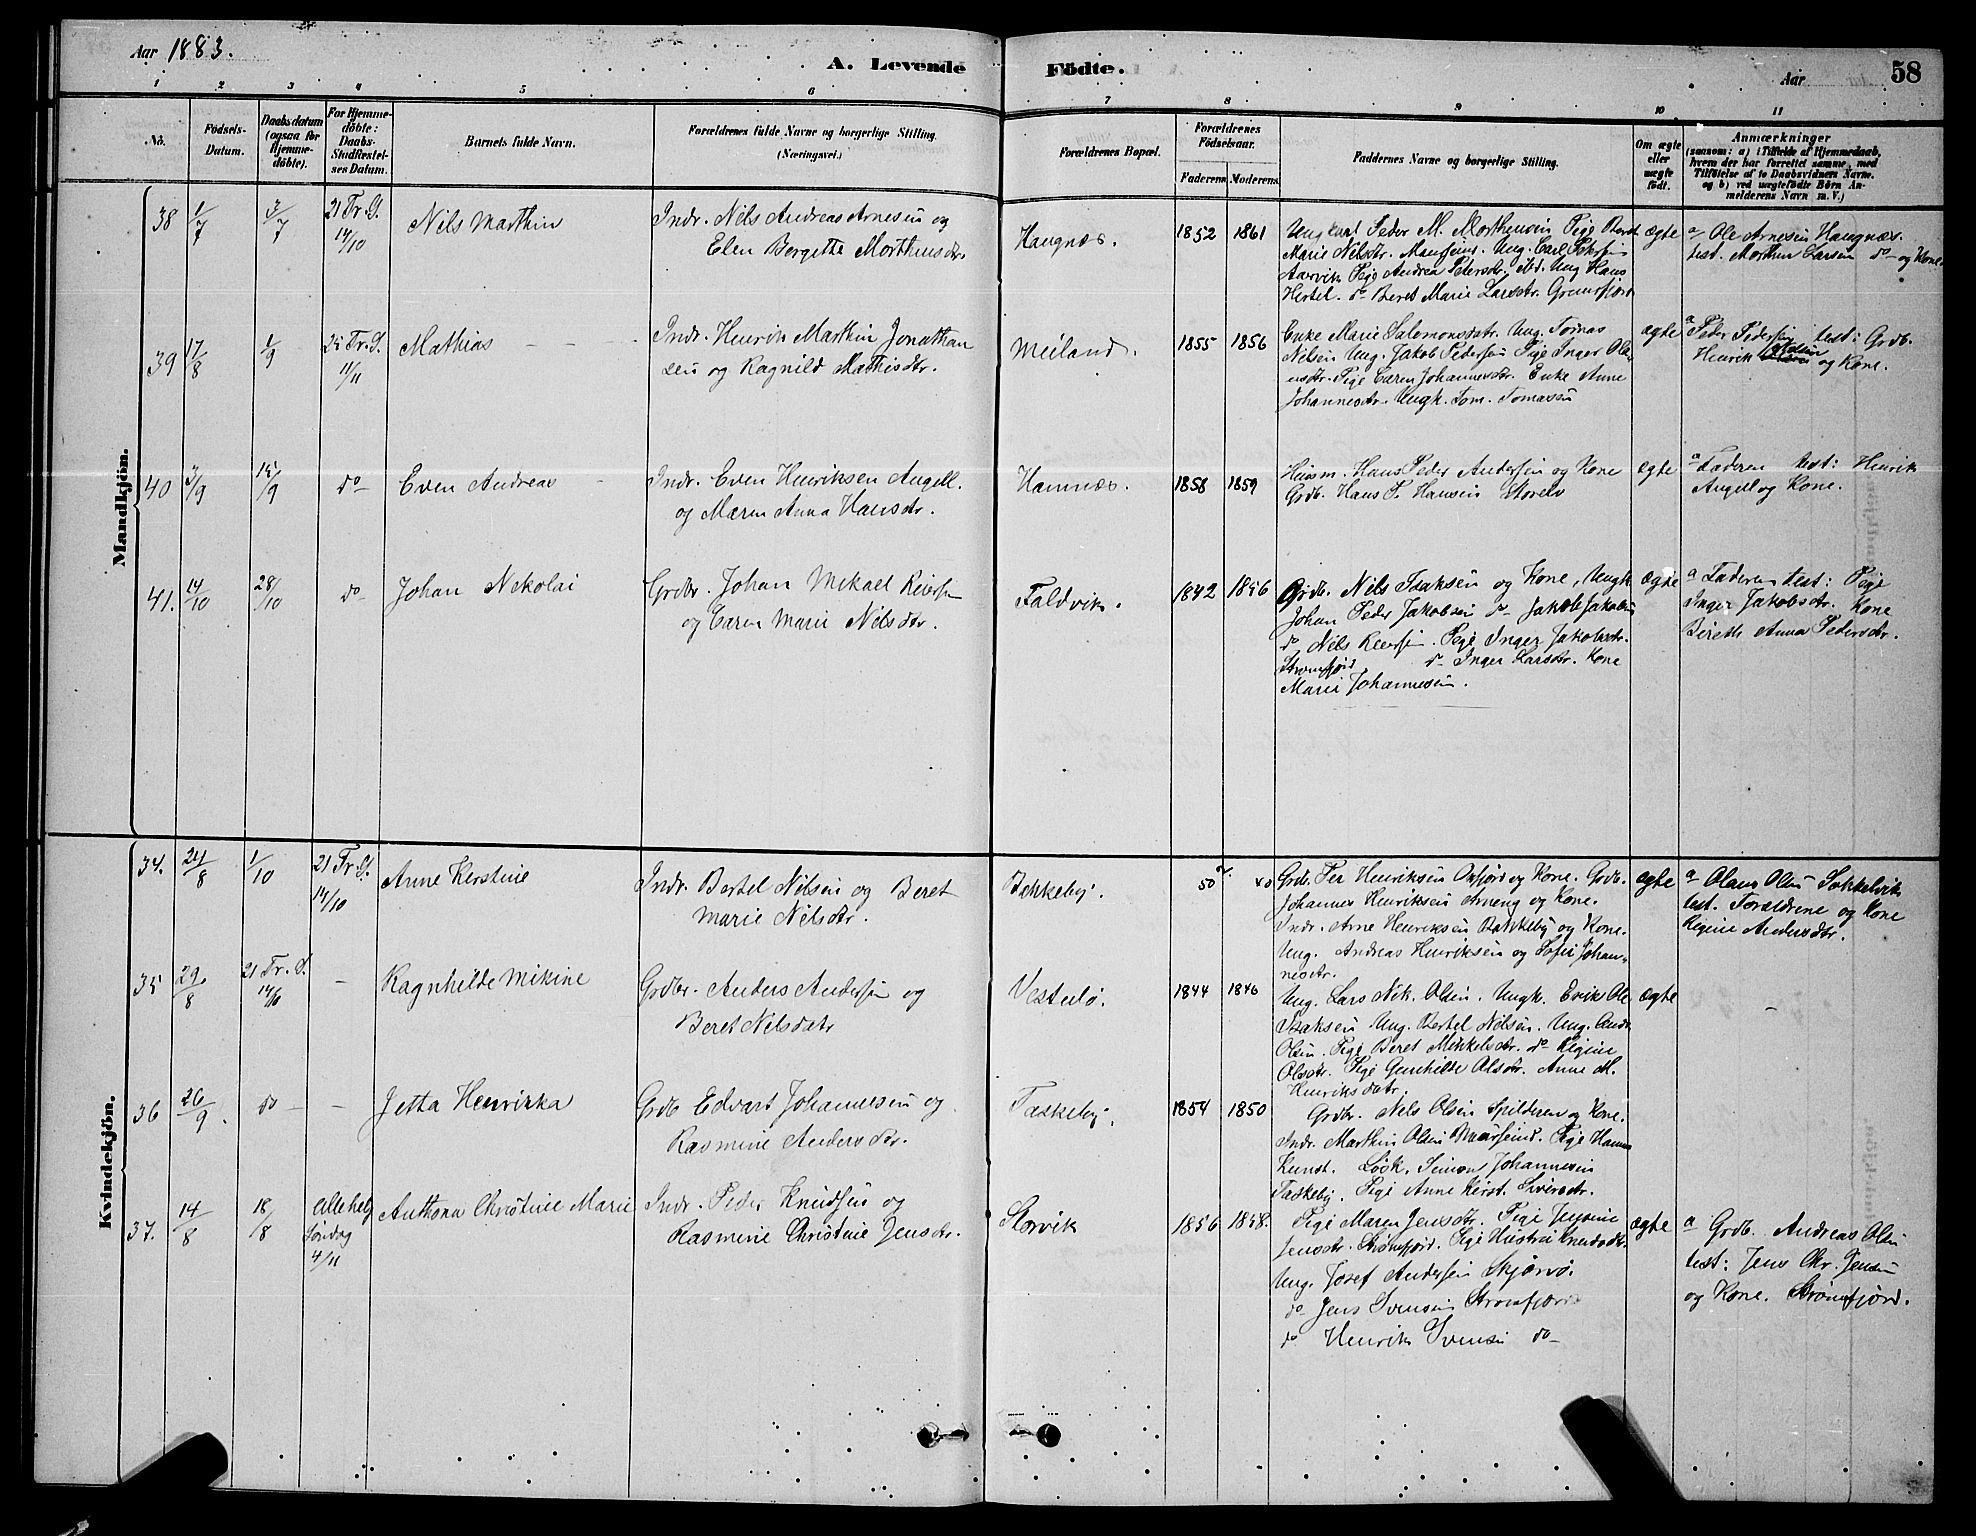 Aar 1883.
A. Levende
Födte.
Aar
58
1 2 3 4 5 6 7 8 9 10 11
No.
Födsels-
Datum.
Daabsdatum
(ogsaa for
Hjemme-
döbte).
For Hjemme-
döbte:
Daabs-
Stadfæstel-
ses Datum.
Barnets fulde Navn.
Forældrenes fulde Navne og borgerlige Stilling.
(Næringsvei.)
Forældrenes Bopæl.
Forældrenes
Födselsaar.
Faderens Moderens
Faddernes Navne og borgerlige Stilling.
Om ægte
eller
uægte
födt.
Anmærkninger
(saasom: a) i Tilfælde af Hjemmedaab,
hvem der har forrettet samme, med
Tilföielse af to Daabsvidners Navne.
og b) ved uægtefödte Börn An-
melderens Navn m. V.)
Mandkjön.
38 1/7 3/7 21 Tr. S. 14/10
Nils Marthin
Indr. Nils Andreas Arnesen og
Elen Bergitte Morthensdtr.
Haugnæs.
1852 1861
Ungkarl Peder M. Morthensen Pige Beret
Marie Nilsdtr. Maursund. Ung. Carl Petersen
Aarvik Pige Andrea Petersdtr. ibd. Ung Hans
Hertel. do Beret Marie Larsdtr. Grunfjord
ægte
a/ Ole Arnesen Haugnæs.
test. Morthen Larsen do og Kone.
39 17/8 1/9 25 Tr. S. 11/11
Mathias
Indr. Henrik Marthin Jonathan
sen og Ragnild Mathisdtr.
Meiland.
1855 1856
Enke Marie Salomonsdtr. Ung. Tomas
Nilsen Ung. Jakob Pedersen Pige Inger Ole-
nsdtr. Pige Caren Johannesdtr. Enke Anne
Johannesdtr. Ungk. Tom. Tomassen
ægte
a Peder Pedersen test: Grdb.
Henrik og Kone.
40 3/9 15/9 do
Even Andreas
Indr. Even Henriksen Angell.
og Maren Anna Hansdtr.
Hamnæs.
1858 1859
Husm. Hans Peder Andersen og Kone
Grdb. Hans P. Hansen Storelv
ægte
a Faderen test: Henrik
Angell og Kone.
41. 14/10 28/10 do
Johan Nikolai
Grdbr. Johan Mikael Reiersen
og Caren Marie Nilsdtr.
Faldvik.
1842 1856
Grdb. Nils Isaksen og Kone, Ungk
Johan Peder Jakobsen do Jakob Jakobsen
do Nils Reiersen. Pige Inger Jakobsdtr.
Strømfjord do Inger Larsdtr. Kone
Marie Johannesen.
ægte
a Faderen test: Pige
Inger Jakobsdtr. Kone
Bereth Anna Pedersdtr.
Kvindekjön.
34. 24/8 1/10 21 Tr. S. 14/10
Anne Kerstine
Indr. Bertel Nilsen og Beret
Marie Nilsdtr.
Bekkeby.
50 40
Grdb. Per Henriksen Oxfjord og Kone. Grdb.
Johannes Henriksen Arneng og Kone.
Indr. Arne Henriksen Bakkeby og Kone.
Ung. Andreas Henriksen og Sofie Johan-
nesdtr.
ægte
a Olaus Olsen Sokkelvik
test. Forældrene og Kone
Regine Andersdtr.
35 29/8 21 Tr. S. 14/10 -
Ragnhilde Mikine
Grdbr. Anders Andersen og
Beret Nilsdatr
Vesterlø.
1844 1846
Ung. Lars Nik. Olsen. Ungk. Erik Ole
Isaksen Ung. Bertel Nilsen. Ung. Andr.
Olsen. Pige Beret Mikkelsdtr. do Regine
Olsdtr. Pige Gunhilde Olsdtr. Anne M.
Henriksdatr.
ægte
-
36 26/9. do - -
Jetta Henrikka
Grdb Edvart Johannesen og
Rasmine Andersdtr.
Taskeby.
1854 1850
Grdbr. Nels Olsen Spilderen og Kone.
Indr. Marthin Olsen Maursund. Pige Hanna
Kunst. Løsk. Simon Johannesen
Taskeby. Pige Anne Kerst. Siversdtr.
37. 14/8 18/8 Allehelg Søndag 4/11
Anthona Christine Marie
Indr. Peder Knudsen og
Rasmine Christine Jensdtr.
Storvik
1856 1858.
Pige Maren Jensdtr. Pige
Jensdtr. Strømfjord. Pige
Ung. Josef Andersen Skjervø.
do Jens Svensen Strømfjord
do Henrik Svensen do
ægte
a Grdb. Andreas Olsen
test: Jens Chr. Jensen
og Kone. Strømfjord.